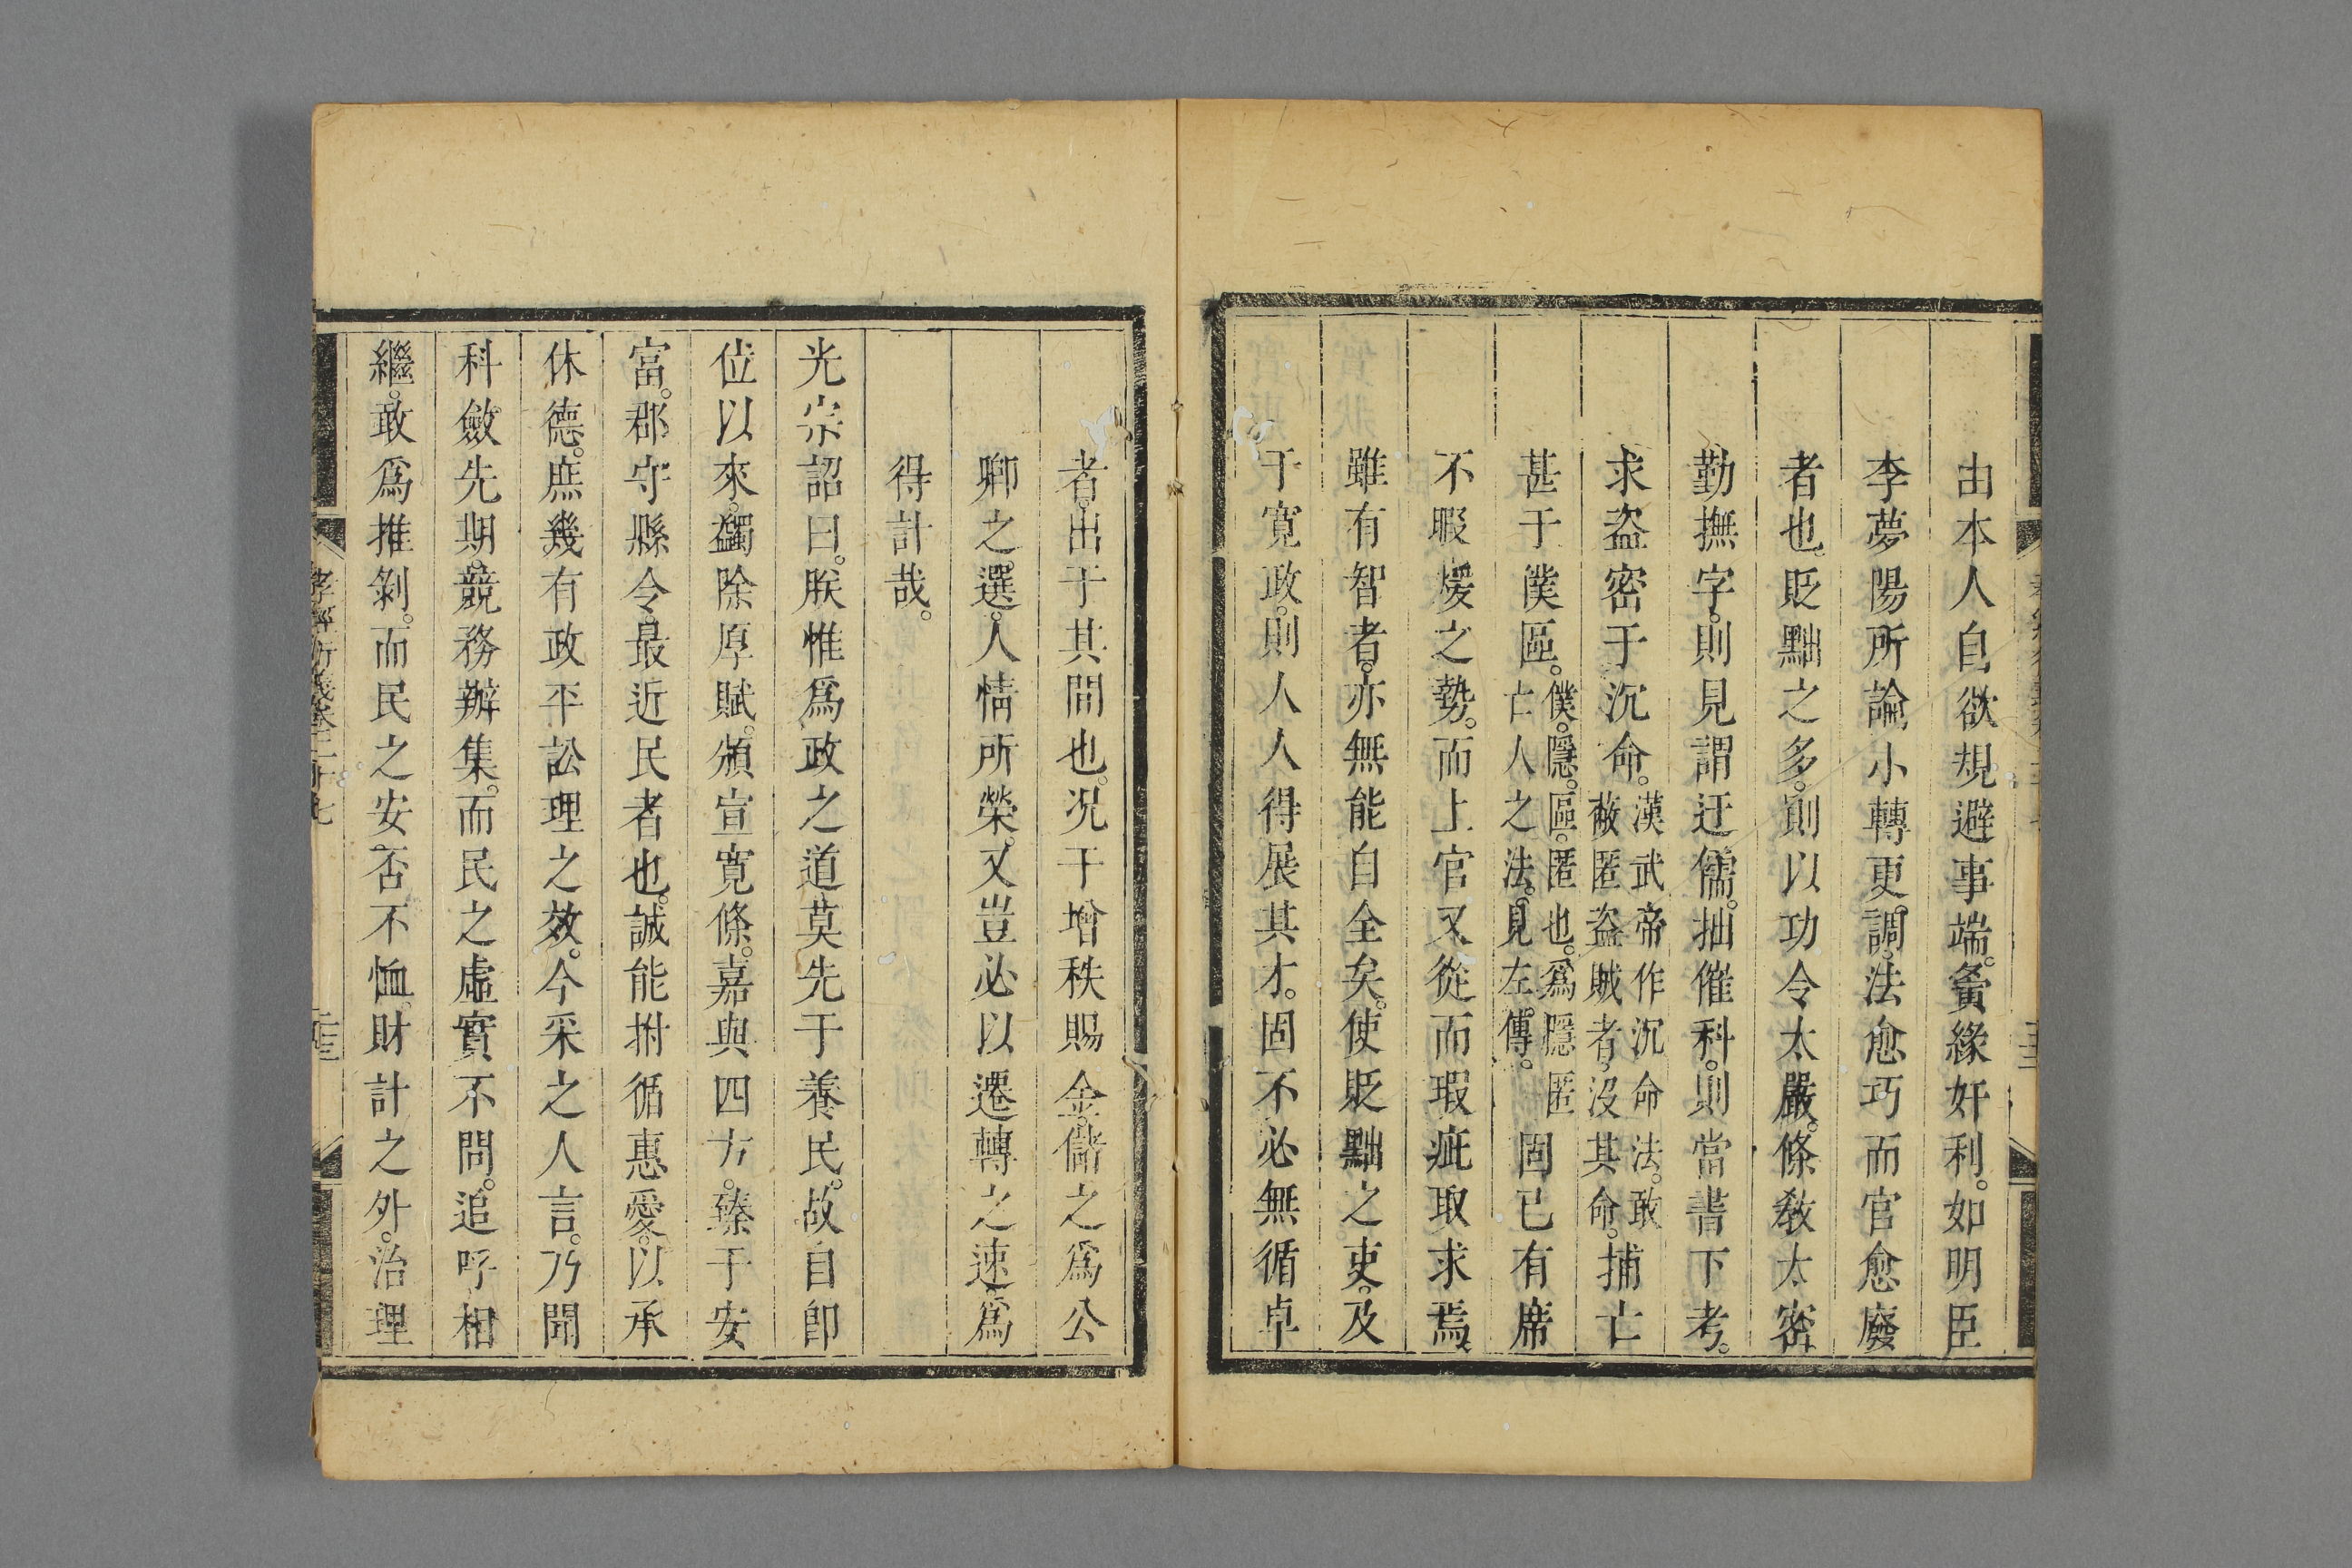 由本人自欲規避事端。夤緣奸利。如明臣
李夢陽所論小轉更調。法愈巧而官愈廢
者也。貶黜之多。則以功令太嚴。條敎太密
勤撫字。則見謂迂儒。拙催科。則當書下考。
求盜密于沉命。漢武帝作沉命法。敢蔽匿盜賊者。沒其命。捕亡
甚于僕區。僕。隱。區。匿也。爲隱匿亡人之法。見左傳。固已有席
不暇煖之勢。而上官又從而瑕疵取求焉。
雖有智者。亦無能自全矣。使貶黜之吏。及
于寬政。則人人得展其才。固不必無循卓
者。出于其間也。况于增秩賜金。儲之爲公
卿之選。人情所榮。又豈必以遷轉之速爲
得計哉。
光宗詔曰。朕惟爲政之道莫先于養民。故自卽
位以來。蠲除厚賦。頒宣寬條。嘉與四方。臻于安
富。郡守縣令。最近民者也。誠能拊循惠愛。以承
休德。庶幾有政平訟理之效。今采之人言。乃聞
科斂先期。競務辦集。而民之虛實不問。追呼相
繼。敢爲椎剝。而民之安否不恤。財計之外。治理
孝經衍義卷二十七